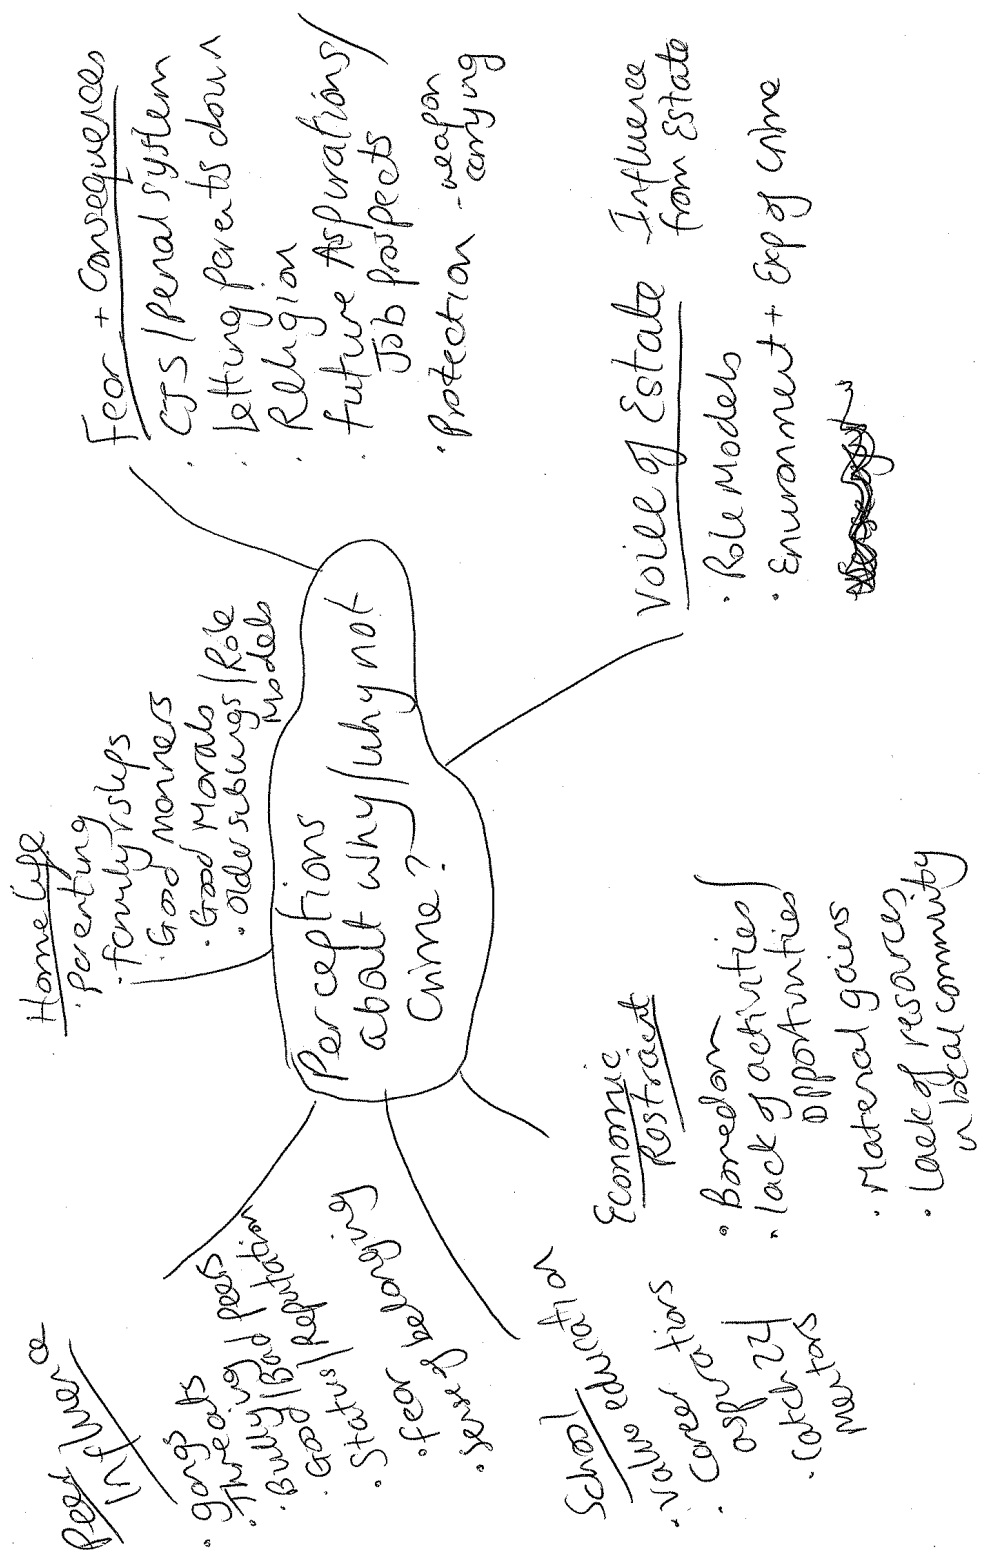 Perceptions
about why/why not
Crime?
Peer
Influence
· gangs
· Threats
· Bullying / peers
· Good/Bad
Status/Reputation
· fear
· sense of belonging
Home life
· parenting
· family r ships
· Good manners
· Good Morals
· older siblings / Role
Models
Fear + Consequences
· CJS / penal system
· letting parents down
· Religion
· future Aspirations/
Job prospects
· Protection - weapon
carrying
School
· Value education
· Career
aspirations
· Catch 22/
mentors
Economic
Restraint
· Boredom
· lack of activities/
opportunities
· Material gains
· Lack of resources
in local community
Voice of Estate - Influence
from Estate
· Role Models
· Environment + Exp of crime